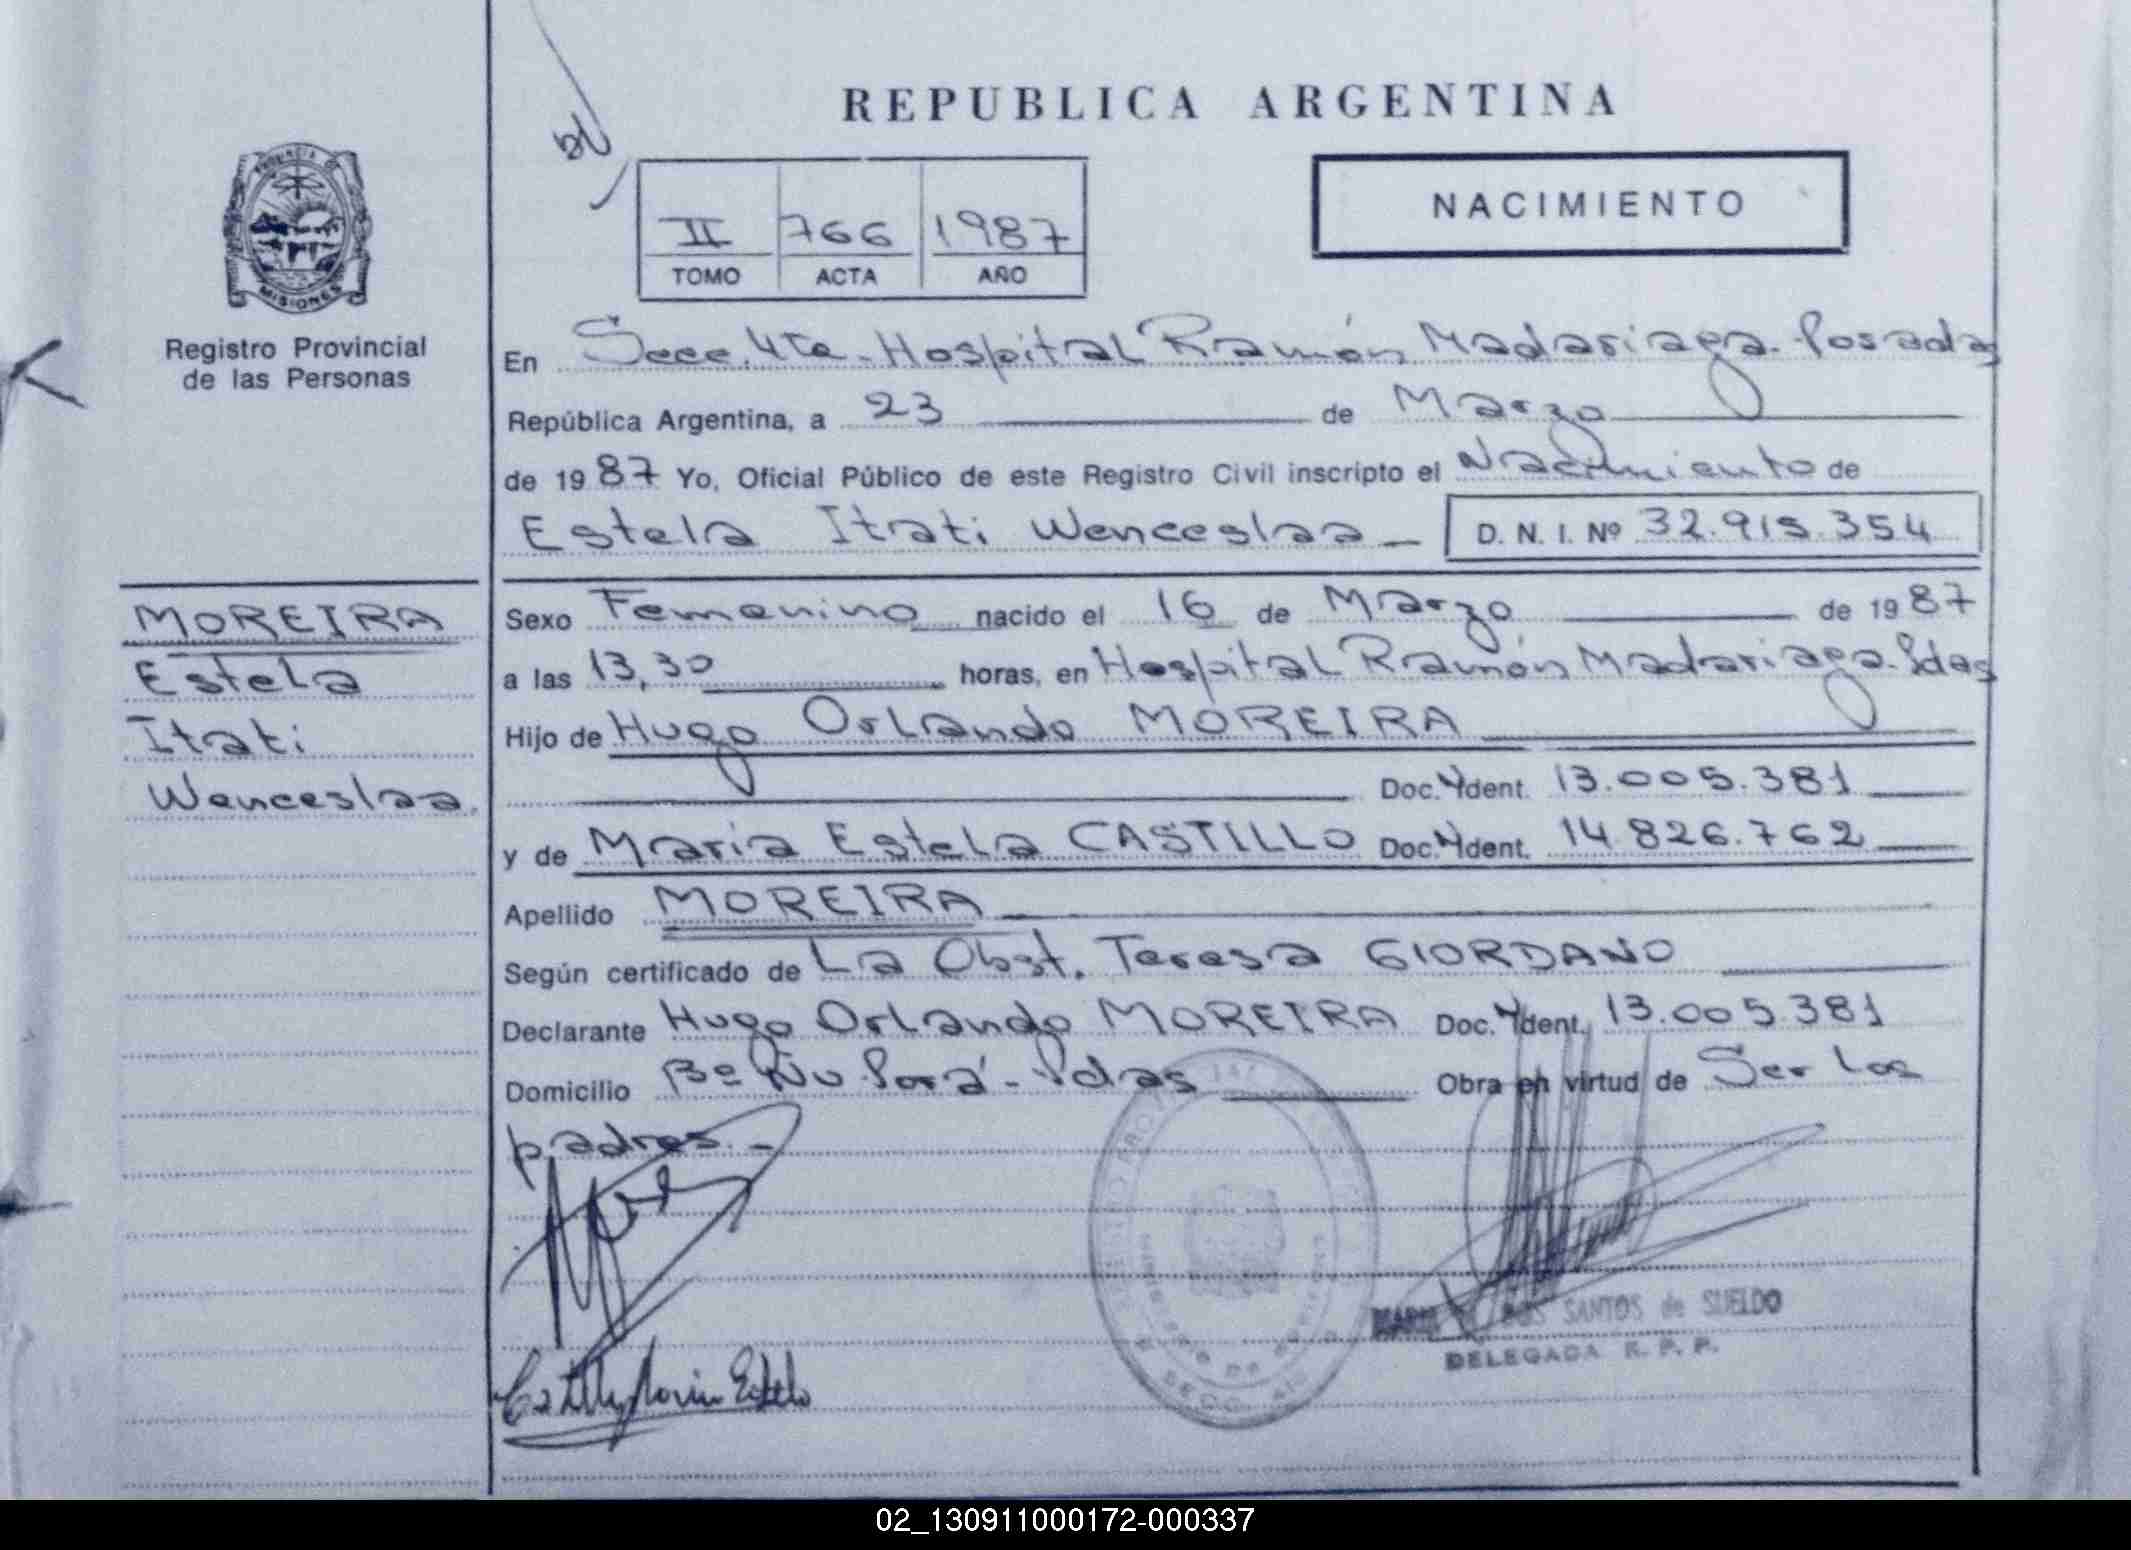 REPUBLICA ARGENTINA
PROVINCIA DE
MISIONES
Registro Provincial
de las Personas
II 766 1987
TOMO ACTA AÑO
NACIMIENTO
En Secc. 4ta. Hospital Ramón Madariaga. Posadas
República Argentina, a 23 de Marzo
de 1987 Yo, Oficial Público de este Registro Civil inscripto el Nacimiento de
Estela Itati Wenceslaa D. N. I. Nº 32.915.354
MOREIRA
Estela
Itati
Wenceslaa.
Sexo Femenino nacido el 16 de Marzo de 1987
a las 13,30 horas, en Hospital Ramón Madariaga. Pdas
Hijo de Hugo Orlando MOREIRA
Doc. Ydent. 13.005.381
y de Maria Estela CASTILLO Doc. Ydent. 14.826.762
Apellido MOREIRA
Según certificado de La Obst. Teresa GIORDANO
Declarante Hugo Orlando MOREIRA Doc. Ydent. 13.005.381
Domicilio Bº Ñu Porá - Pdas Obra en virtud de Ser los
padres. -
DOS SANTOS de SUELDO
DELEGADA R. P. P.
Castillo Maria Estela
02_130911000172-000337